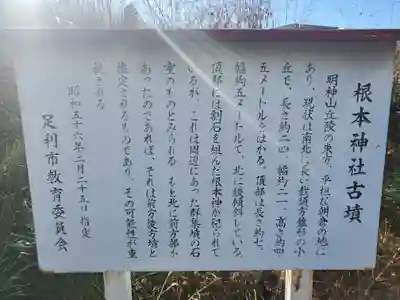 根本神社古墳
明神山丘陵の東方、平坦な朝倉の地に
あり、現状は南北に長い截頭方錐形の小
丘で、長さ約二四、幅約二一、高さ約四・
五メートルをはかる。頂部は長さ約七、
幅約五メートルで、北に緩傾斜している。
頂部には割石を組んだ根本神が祀られて
いるが、これは周辺にあった群集墳の石
室のものとみられる。もし北に前方部が
あったのであれば、それは前方後方墳と
推定されるものであり、その可能性が重
視される。
昭和五十六年二月二十五日指定
足利市教育委員会